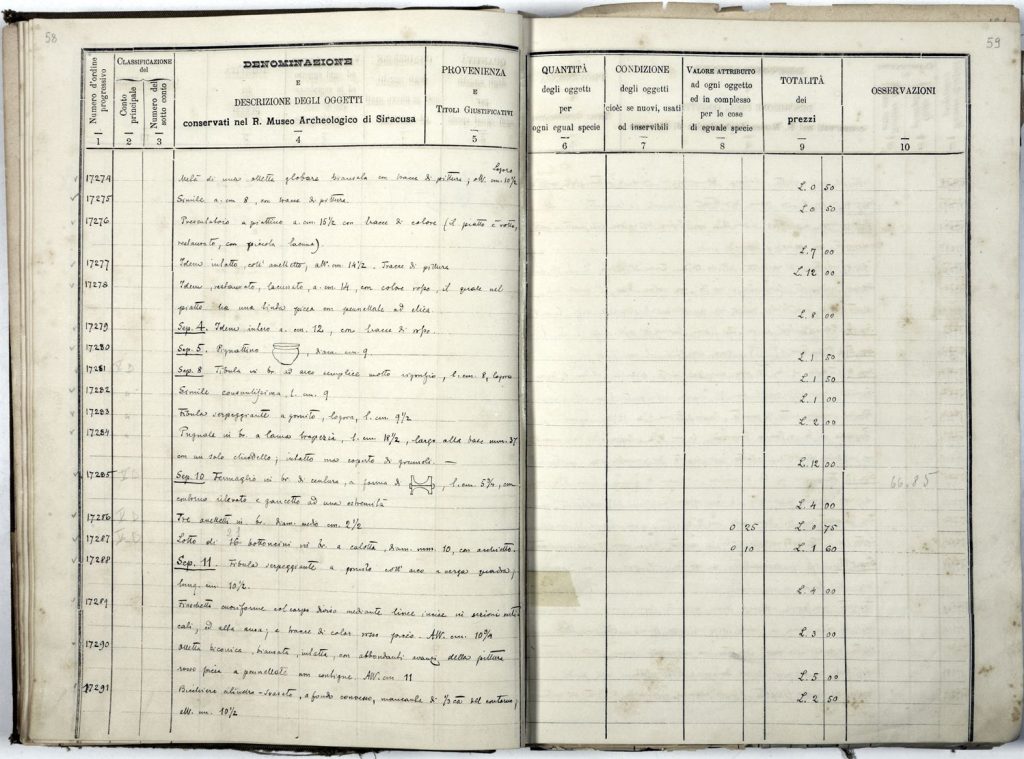 58
Numero d'ordine progressivo
CLASSIFICAZIONE del
Conto principale
Numero del sotto conto
DENOMINAZIONE
E
DESCRIZIONE DEGLI OGGETTI
conservati nel R. Museo Archeologico di Siracusa
PROVENIENZA
E
TITOLI GIUSTIFICATIVI
1 2 3 4 5
17274 Metà di una olletta globare biansata con tracce di pittura, alt. cm. 10 1/2
logoro
17275 Simile a. cm 8, con tracce di pittura.
17276 Presentatoio a piattino a. cm 15 1/2 con tracce di colore (il piatto è rotto,
restaurato, con piccola lacuna).
17277 Idem intatto, coll'anelletto, alt. cm 14 1/2. Tracce di pittura
17278 Idem, restaurato, lacunato, a. cm 14, con colore rosso, il quale nel
piatto ha una tinta a pennellate ad elica.
17279 Sep. 4. Idem intero a. cm. 12, con tracce di rosso.
17280 Sep. 5. Pignattino , diam. cm. 9
17281 Sep. 8 Fibula in br. ad arco semplice molto rigonfio, l. cm. 8, logora
17282 Simile l. cm. 9
17283 Fibula serpeggiante a gomito, logora, l. cm. 9 1/2
17284 Pugnale in br. a lama trapezia, l. cm 18 1/2, largo alla base mm. 37
con un solo chiodello; intatto ma coperto di grumoli. —
17285 Sep. 10 Fermaglio in br. di cintura, a forma di , l. cm. 5 , con
contorno rilevato e gancetto ad una estremità
17286 Tre anelletti in br. diam. medo cm. 2 1/2
17287 Lotto di 16 bottoncini in br. a calotta, diam. mm. 10, con archietto.
17288 Sep. 11. Fibula serpeggiante a gomito coll'arco a verga quadra,
lung. cm. 10 1/2.
17289 Fiaschetto cuoriforme col corpo diviso mediante linee incise in sezioni verti
cali, ed alta ansa; e tracce di color rosso . Alt. cm. 10 3/4
17290 Olletta biconica, biansata, intatta, con abbondanti avanzi della pittura
rosso a pennellate non contigue. Alt. cm 11
17291 Bicchiere cilindro-svasato, a fondo convesso, mancante di 1/3 ca del contorno,
alt. cm. 10 1/2
59
QUANTITÀ
degli oggetti
per
ogni egual specie
CONDIZIONE
degli oggetti
cioè: se nuovi, usati
od inservibili
VALORE ATTRIBUITO
ad ogni oggetto
ed in complesso
per le cose
di eguale specie
TOTALITÀ
dei
prezzi
OSSERVAZIONI
6 7 8 9 10
L. 0 50
L. 0 50
L. 7 00
L. 12 00
L. 8 00
L. 1 50
L. 1 50
L. 1 00
L. 2 00
L. 12 00
66.85
L. 4 00
0 25 L. 0 75
0 10 L. 1 60
L. 4 00
L. 3 00
L. 5 00
L. 2 50